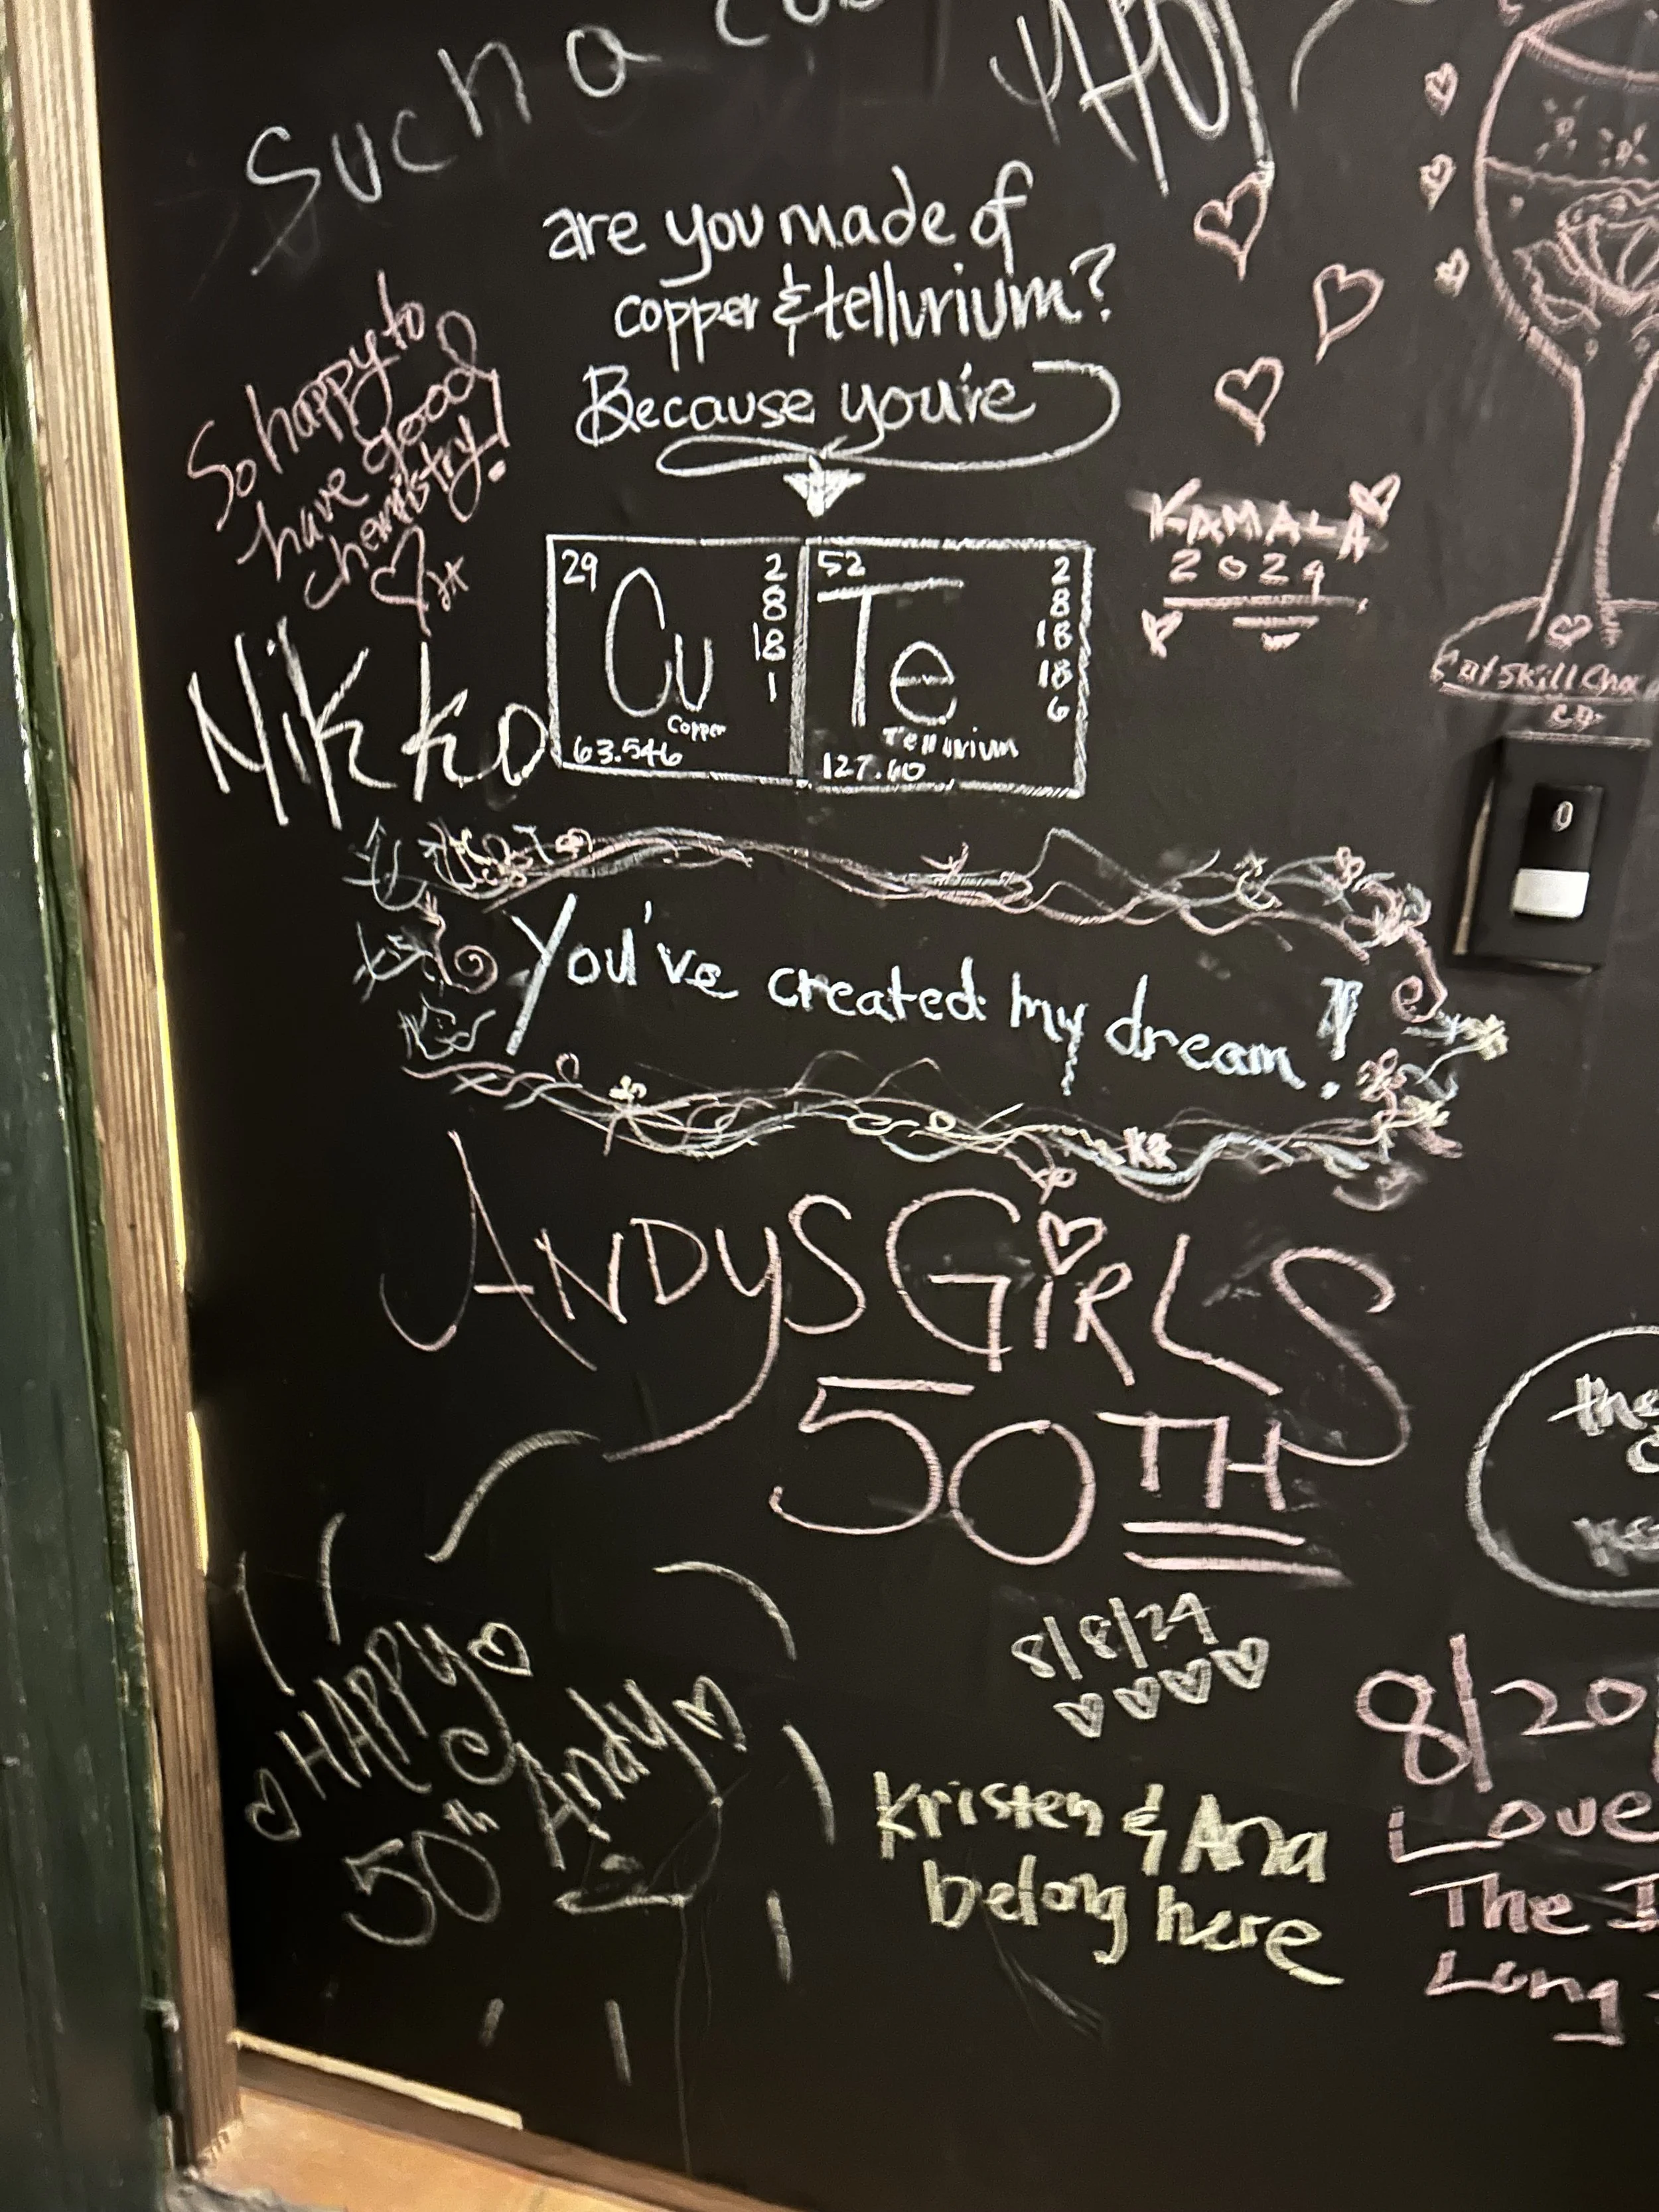 Such a
are you made of
copper & tellurium?
Because you're
So happy to
have good
chemistry!
29
Cu
Copper
63.546
2
8
18
1
52
Te
Tellurium
127.60
2
8
18
18
6
KAMALA
2024
Nikko
You've created my dream!
ANDYS GiRLS
50TH
8/8/24
HAPPY
50th Andy
Kristen & Ana
belong here
8/20
Love
The
Long
0